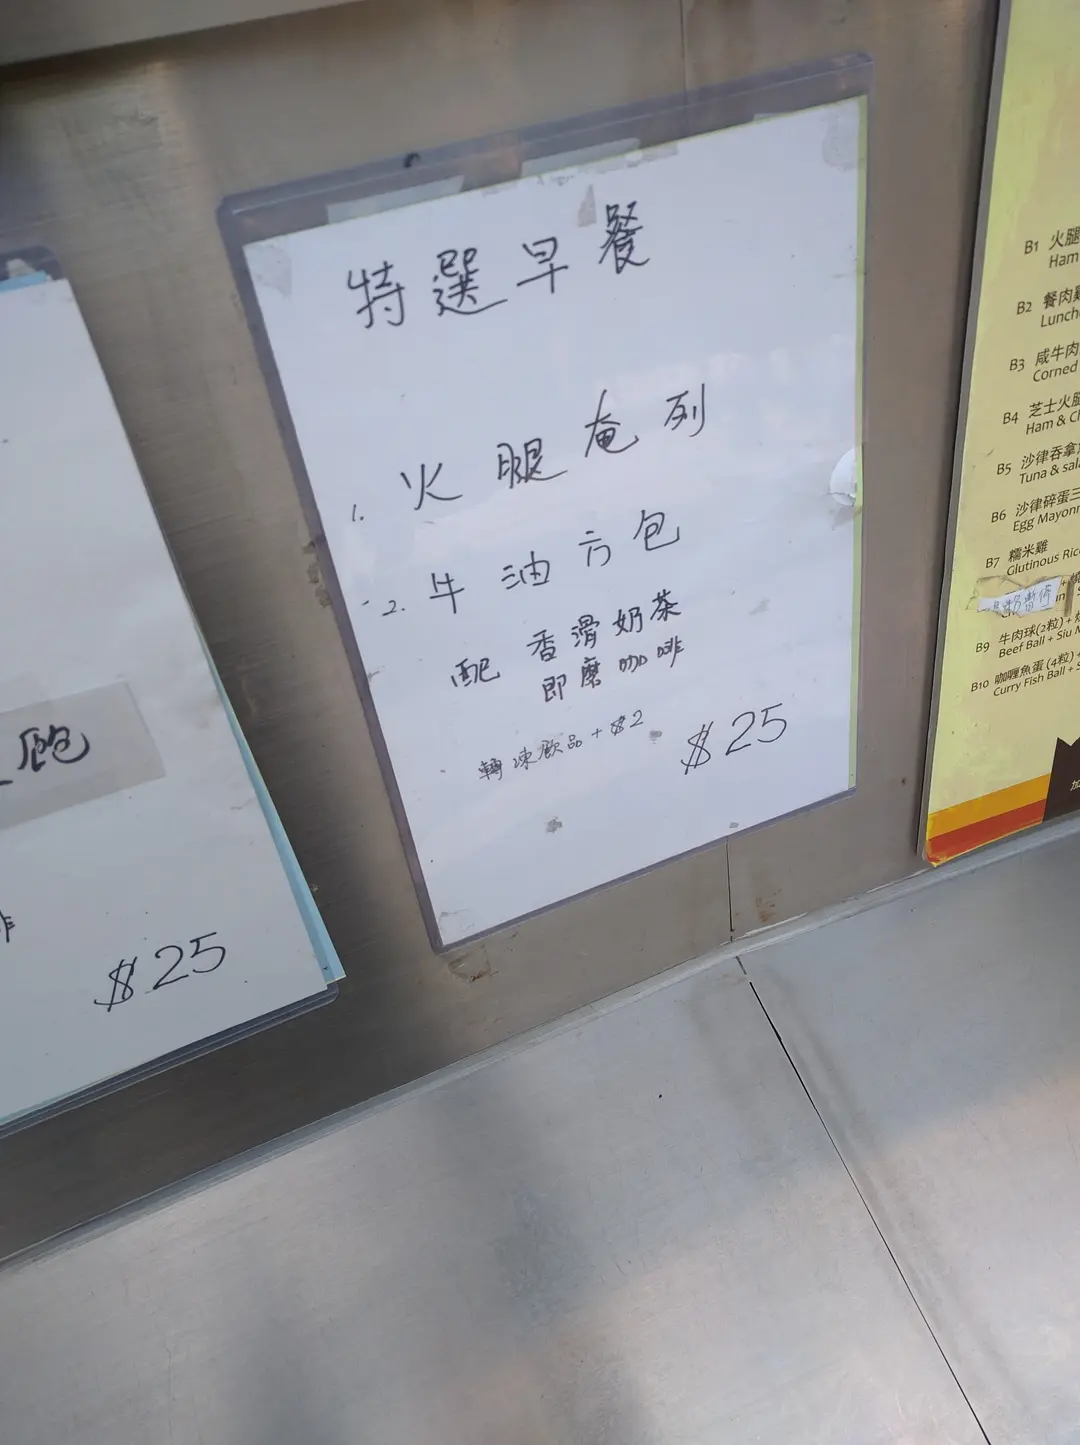 飽
啡
$25
特選早餐
1. 火腿奄列
2. 牛油方包
配 香滑奶茶
即磨咖啡
轉凍飲品+$2
$25
B1 火腿
Ham
B2 餐肉
Lunche
B3 咸牛肉
Corned
B4 芝士火腿
Ham & Ch
B5 沙律吞拿
Tuna & sal
B6 沙律碎蛋三
Egg Mayonn
B7 糯米雞
Glutinous Rice
暫停
B9 牛肉球(2粒)+
Beef Ball + Siu M
B10 咖喱魚蛋(4粒)+
Curry Fish Ball + S
加